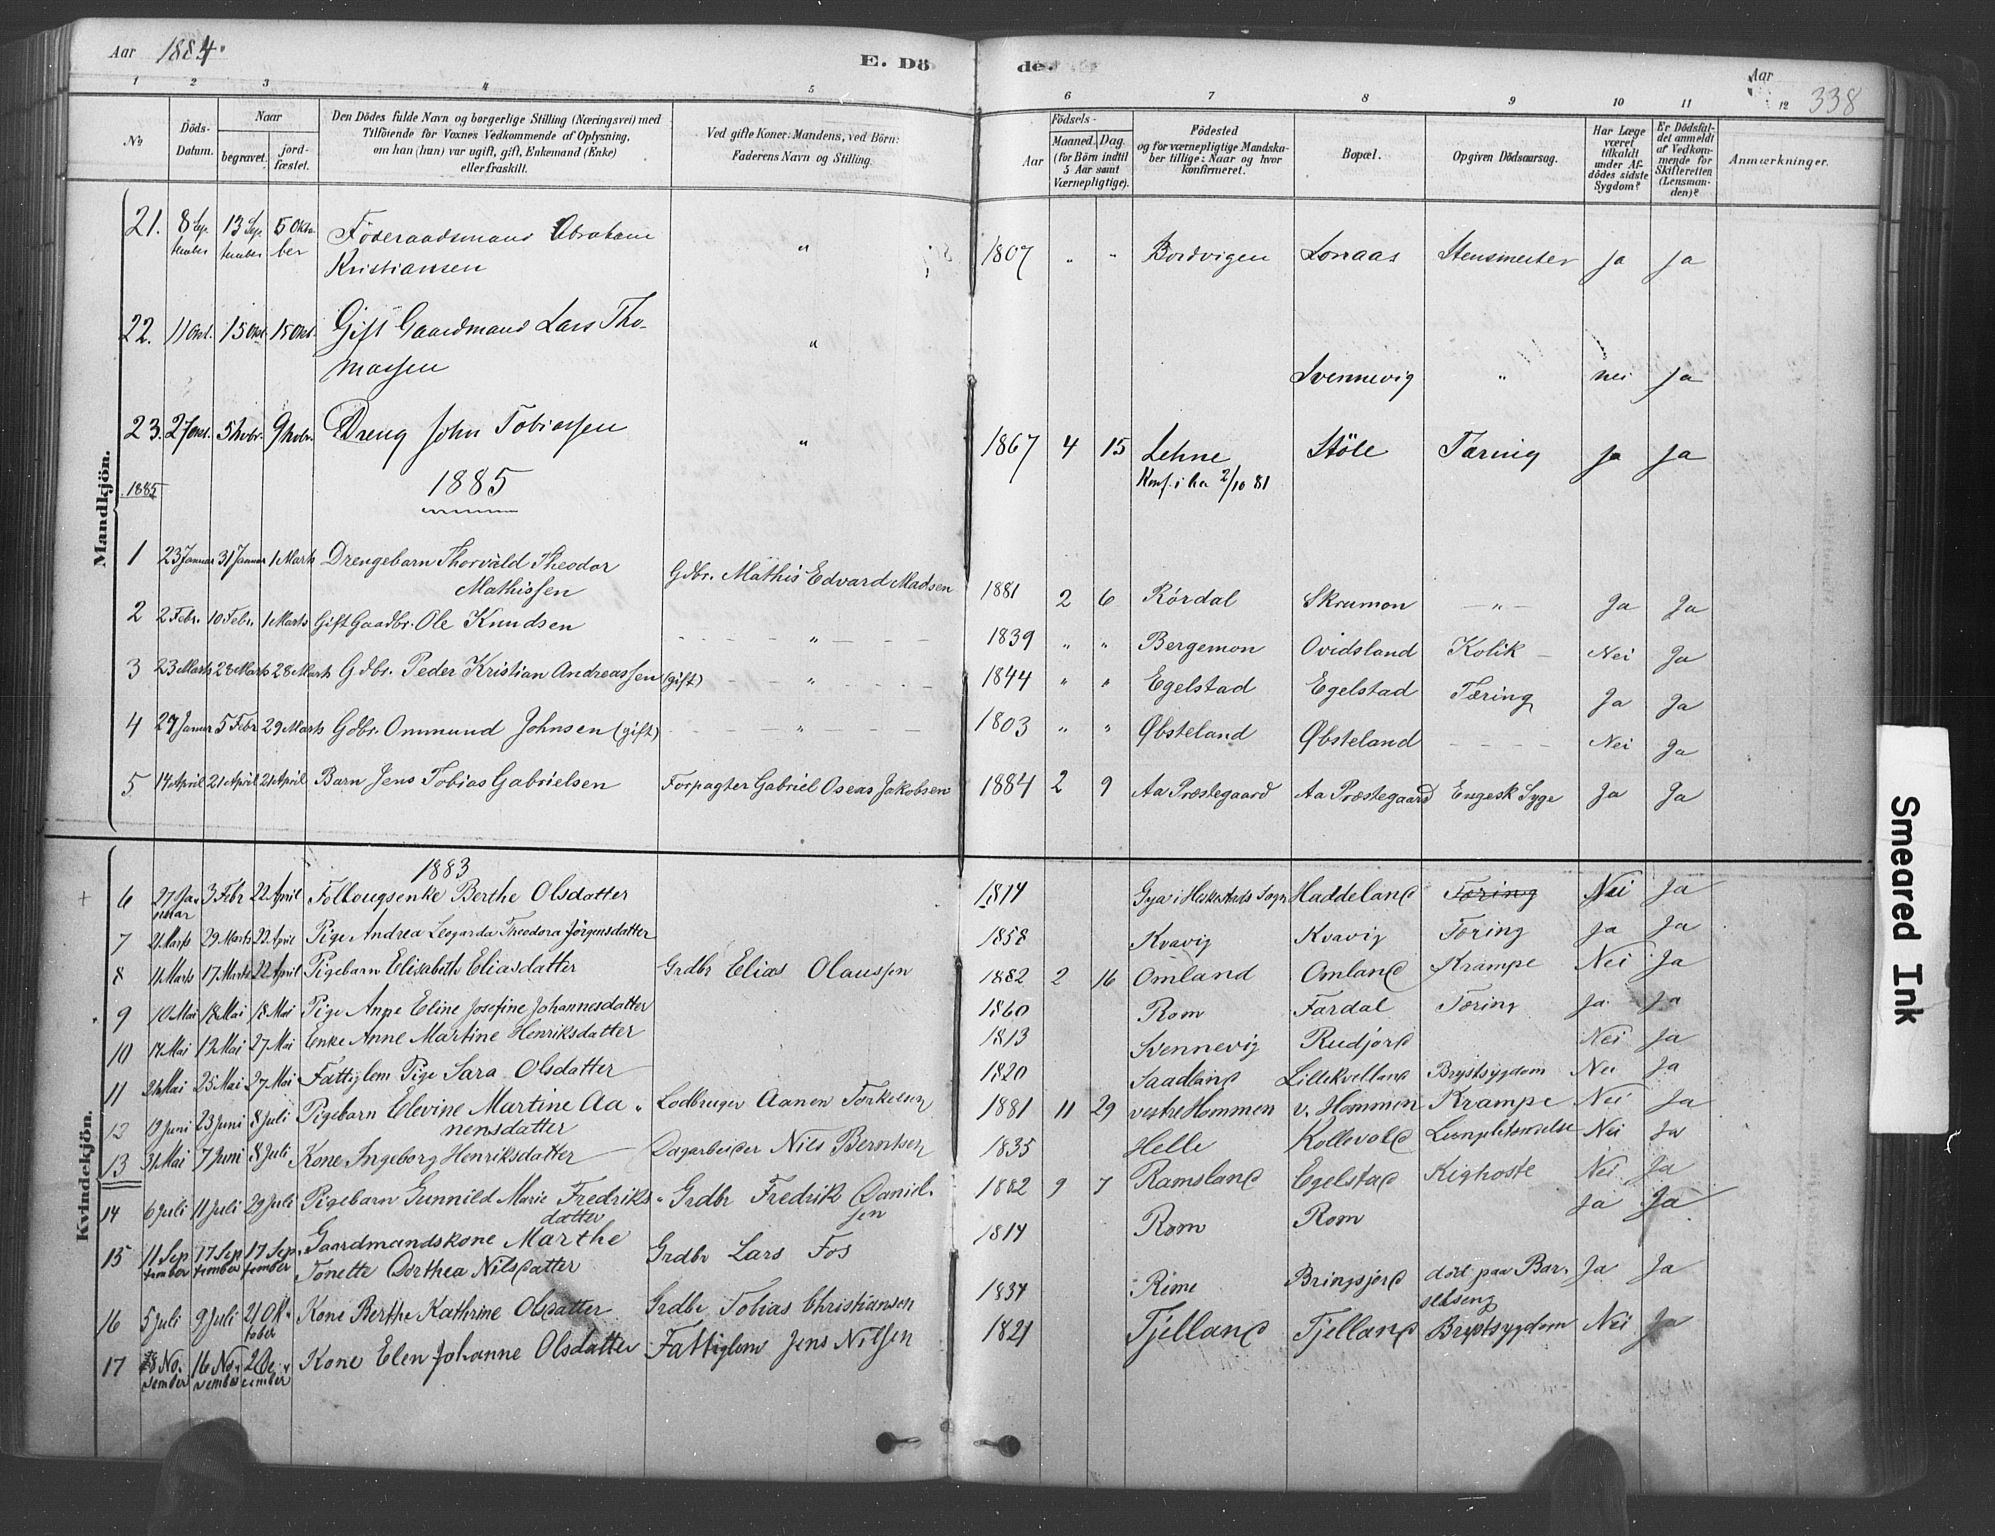 Aar 1884.
E. Dö de.
Aar
338
1 2 3 4 5 6 7 8 9 10 11 12
No
Döds-Datum.
Naar
begravet. jord-fæstet.
Den Dödes fulde Navn og borgerlige Stilling (Næringsvei) med
Tilföiende for Voxnes Vedkommende af Oplysning,
om han (hun) var ugift, gift, Enkemand (Enke)
eller fraskilt.
Ved gifte Koner: Mandens, ved Börn:
Faderens Navn og Stilling.
Födsels-
Aar
Maaned. Dag.
(for Börn indtil
5 Aar samt
Værnepligtige).
Födested
og for værnepligtige Mandska-
ber tillige: Naar og hvor
konfirmeret.
Bopæl.
Opgiven Dödsaarsag.
Har Læge
været
tilkaldt
under Af-
dödes sidste
Sygdom?
Er Dödsfal-
det anmeldt
af Vedkom-
mende for
Skifteretten
(Lensman-
den)?
Anmærkninger.
Mandkjön.
21. 8 Sep tember 13 Sep tember 5 Okto ber Föderaadsmand Abraham Kristiansen " 1807 " " Bordvigen Lonaas Stensmerter Ja Ja
22. 11 Okt. 15 Okt. 15 Okt. Gift Gaardmand Lars Tho-
massen " Svennevig " nei Ja
23. 27 Okt. 5 Novbr. 9 Novbr. Dreng John Tobiassen " 1867 4 15 Lehne Støle Tæring Ja Ja
Konf. i 2/10 81
1885 1885
1 23 Januar 31 Januar 1 Marts Drengebarn Thorvald Theodor
Mathissen Gdbr. Mathis Edvard Madsen 1881 2 6 Rördal Skrumon " Ja Ja
2 2 Febr. 10 Febr. 1 Marts Gift Gaadbr. Ole Knudsen " 1839 " " Bergemon Ovidsland Kolik Nei Ja
3 23 Marts 28 Marts 28 Marts Gdbr. Peder Kristian Andreassen (gift) " 1844 " " Egelstad Egelstad Tæring Ja Ja
4 27 Januar 5 Febr 29 Marts Gdbr. Ommund Johnsen (gift) " 1803 " " Øbsteland Øbsteland Nei Ja
5 14 April 21 April 21 April Barn Jens Tobias Gabrielsen Forpagter Gabriel Oseas Jakobsen 1884 2 9 Aa Præstegaard Aa Præstegaard Engelsk Syge Ja Ja
Kvindekjön.
1883
+ 6 27 Ja nuar 3 Febr 22 April Follougsenke Berthe Olsdatter 1814 Gya i Heskestads Sogn Haddeland Tæring Nei Ja
7 21 Marts 29 Marts 22 April Pige Andrea Leogarda Theodora Jörgensdatter 1858 Kvavig Kvavig Tæring Ja Ja
8 11 Marts 17 Marts 22 April Pigebarn Elisabeth Eliasdatter Grdbr Elias Olaussen 1882 2 16 Omland Omland Krampe Nei Ja
9 10 Mai 18 Mai 18 Mai Pige Anne Eline Josefine Johannesdatter 1860 Rom Fardal Tæring Ja Ja
10 14 Mai 19 Mai 27 Mai Enke Anne Martine Henriksdatter 1813 Svennevig Rudjord Nei Ja
11 21 Mai 25 Mai 27 Mai Fattiglem Pige Sara Olsdatter 1820 Saadland Lillekvelland Brystsygdom Nei Ja
12 19 Juni 23 Juni 8 Juli Pigebarn Elevine Martine Aa
nensdatter Lodbruger Aanen Torkelsen 1881 11 29 vestre Hommen v. Hommen Krampe Nei Ja
13 31 Mai 7 Juni 8 Juli Kone Ingeborg Henriksdatter Dagarbeider Nils Berntsen 1835 Helle Kollevold Nei Ja
14 6 Juli 11 Juli 29 Juli Pigebarn Gunnild Marie Fredriks
datter Grdbr Fredrik Daniel-
sen 1882 9 7 Ramsland Egelstad Kighoste Nei Ja
15 11 Sep tember 17 Sep tember 17 Sep tember Gaardmandskone Marthe
Tonette Dorthea Nilsdatter Grdbr Lars Fos 1814 Rom Rom Ja Ja
16 5 Juli 9 Juli 21 Ok- tober Kone Berthe Kathrine Olsdatter Grdbr Tobias Christiansen 1834 Rime Bringsjord död paa Bar-
selseng Ja Ja
17 No- vember 16 No- vember 2 De- cember Kone Elen Johanne Olsdatter Fattiglem Jens Nilsen 1821 Fjelland Fjelland Brystsygdom Nei Ja
Smeared Ink